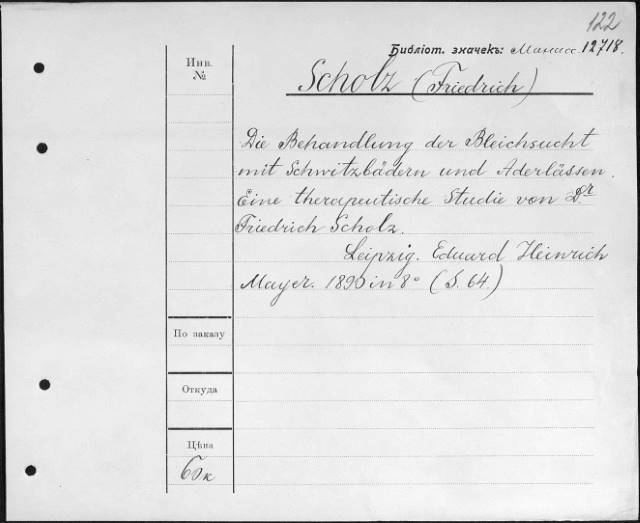 122
Библіот. значекъ: Манасс. 12718.
Инв.
№
Scholz (Friedrich)
Die Behandlung der Bleichsucht
mit Schwitzbädern und Aderlässen.
Eine therapeutische Studie von Dr
Friedrich Scholz.
Leipzig. Eduard Heinrich
Mayer. 1890 in 8° (S. 64)
По заказу
Откуда
Цѣна
60 к